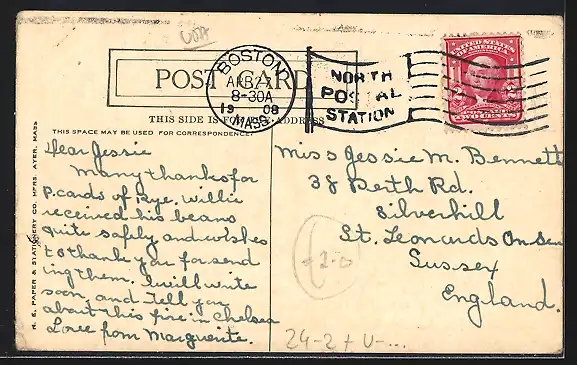 USA
POST CARD
THIS SIDE IS FOR THE ADDRESS
BOSTON
8-30A
1908
MASS.
NORTH
POSTAL
STATION
UNITED STATES
OF AMERICA
2 2
TWO CENTS
THIS SPACE MAY BE USED FOR CORRESPONDENCE.
N. E. PAPER & STATIONERY CO. MFRS. AYER, MASS
Dear Jessie
Many thanks for
p. cards of Rye. Willie
received his beans
quite safely and wishes
to thank you for send
ing them. I will write
soon, and tell you
about this fire in Chelsea
Love from Marguerite.
Miss Jessie M. Bennett
38 Perth Rd.
Silverhill
St. Leonards On Sea
Sussex
England.